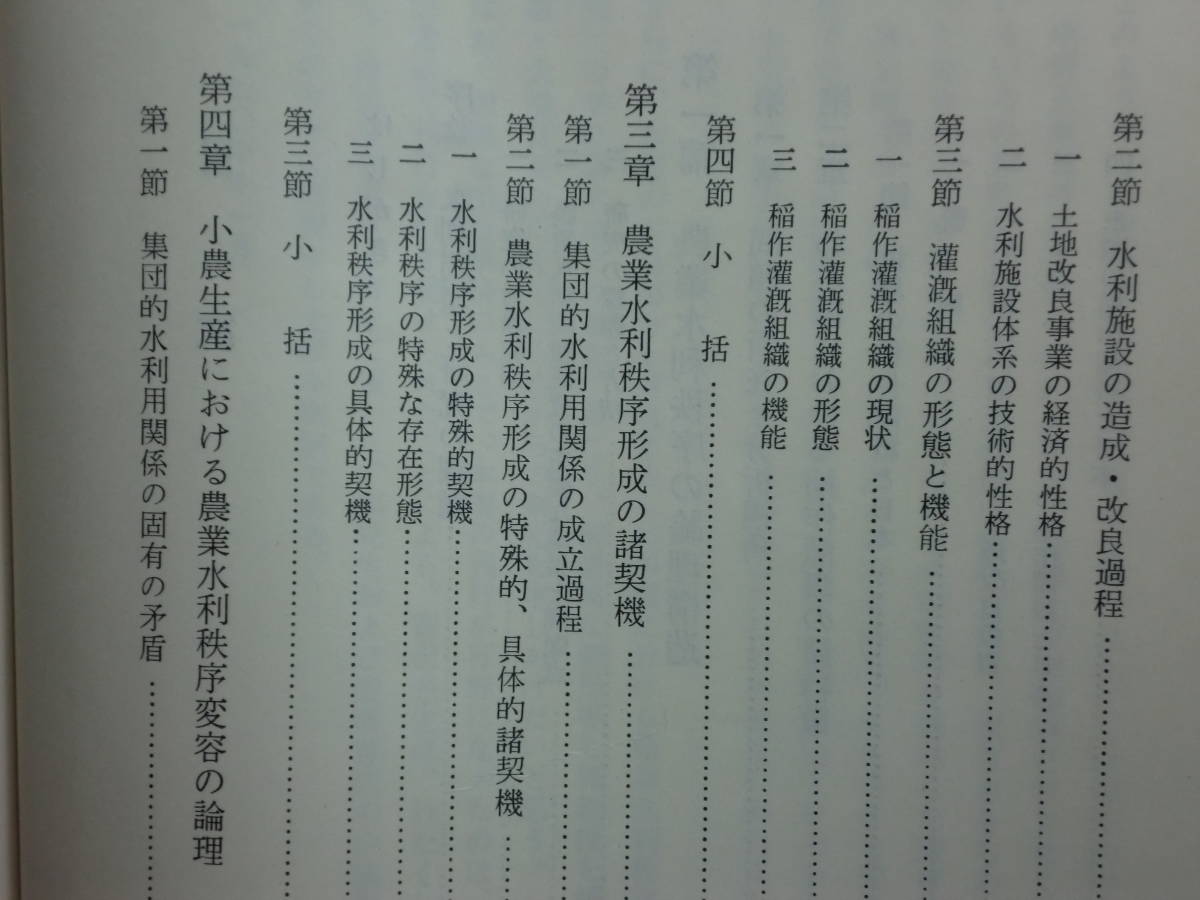 第二節　水利施設の造成・改良過程……………
一　土地改良事業の経済的性格……………
二　水利施設体系の技術的性格……………
第三節　灌漑組織の形態と機能……………
一　稲作灌漑組織の現状……………
二　稲作灌漑組織の形態……………
三　稲作灌漑組織の機能……………
第四節　小　括……………
第三章　農業水利秩序形成の諸契機……………
第一節　集団的水利用関係の成立過程……………
第二節　農業水利秩序形成の特殊的、具体的諸契機……
一　水利秩序形成の特殊的契機……………
二　水利秩序の特殊な存在形態……………
三　水利秩序形成の具体的契機……………
第三節　小　括……………
第四章　小農生産における農業水利秩序変容の論理
第一節　集団的水利用関係の固有の矛盾……………